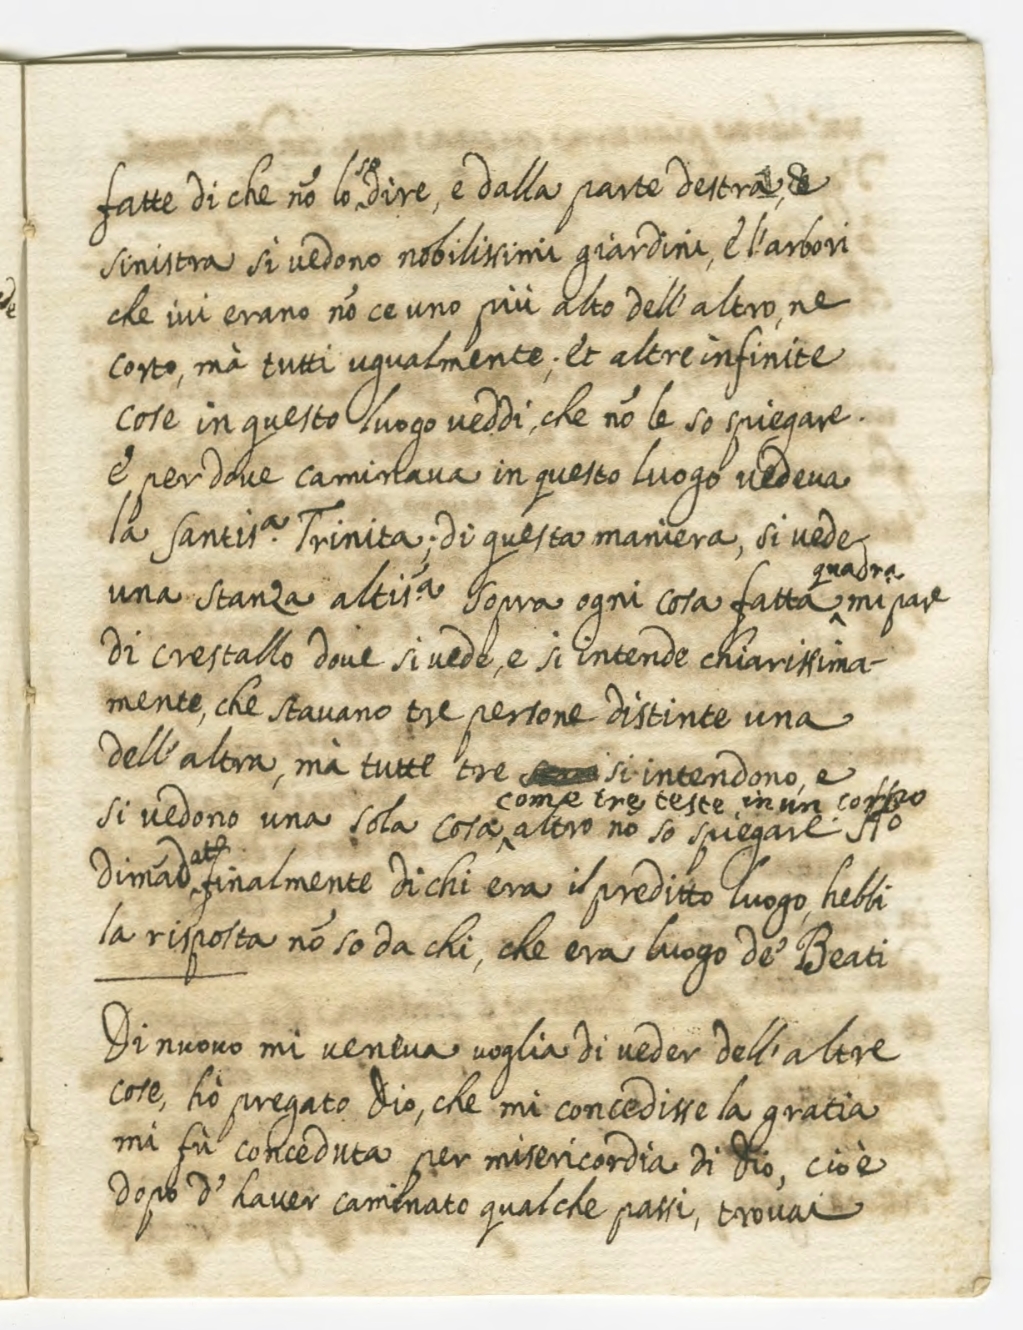 fatte di che nõ lo so dire, e dalla parte destra, e
sinistra si vedono nobilissimi giardini, è l'arbori
che ivi erano nõ ce uno più alto dell'altro, ne
corto, mà tutti ugualmente; et altre infinite
cose in questo luogo veddi, che nõ le so spiegare.
è per dove caminava in questo luogo vedeva
la Santis.ª Trinita; di questa maniera, si vede
una stanza altis.ª sopra ogni cosa fatta quadra mi pare
di crestallo dove si vede, e si intende chiarissima-
mente, che stavano tre persone distinte una
dell'altra, mà tutte tre si intendono, e
si vedono una sola cosa, come tre teste in un corpo altro nõ so spiegare. Hò
dimãdate finalmente di chi era il preditto luogo, hebbi
la risposta nõ so da chi, che era luogo de' Beati
Di nuovo mi veneva voglia di veder dell'altre
cose, hò pregato Dio, che mi concedisse la gratia
mi fù conceduta per misericordia di Dio, cioè
dopo d'haver caminato qualche passi, trovai